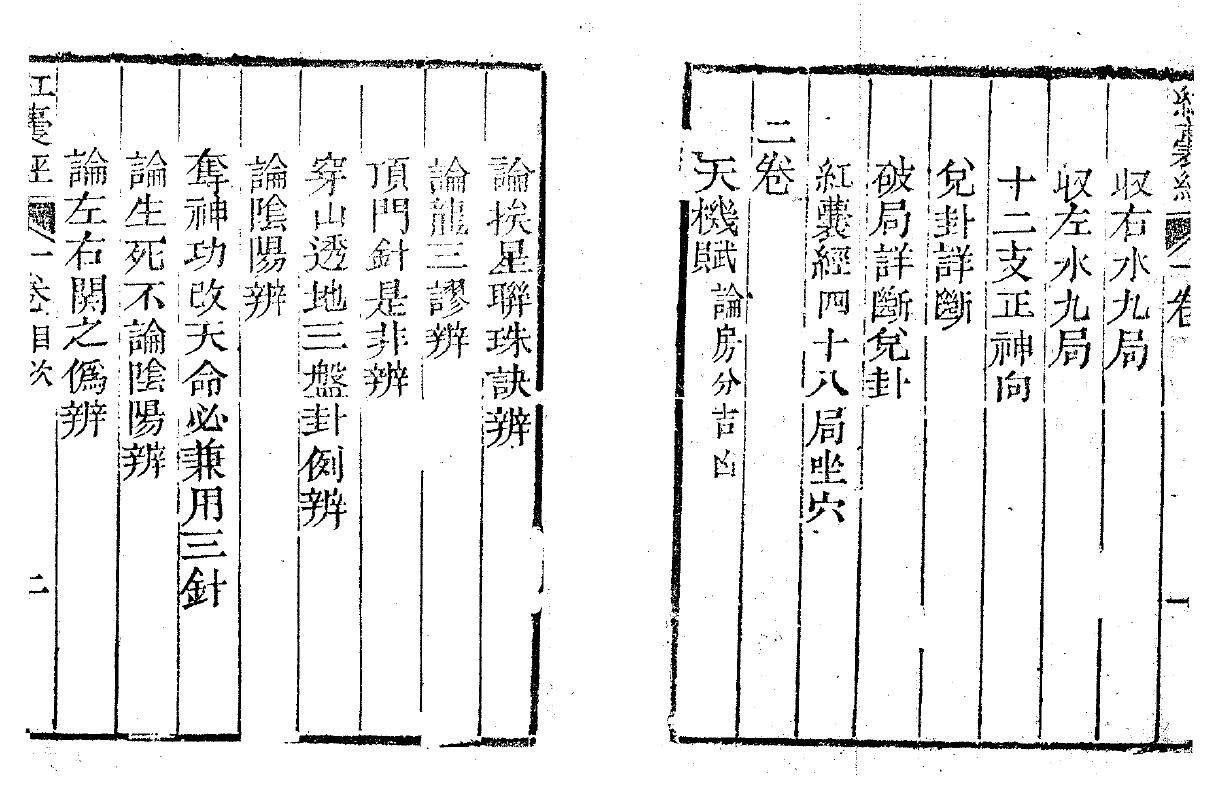 紅囊經 一卷 一
収右水九局
収左水九局
十二支正神向
兌卦詳斷
破局詳斷兌卦
紅囊經四十八局坐穴
二卷
天機賦 論房分吉凶
論挨星聯珠訣辨
論龍三謬辨
頂門針是非辨
穿山透地三盤卦例辨
論陰陽辨
奪神功改天命必兼用三針
論生死不論陰陽辨
論左右關之僞辨
紅囊經 一卷目次 二